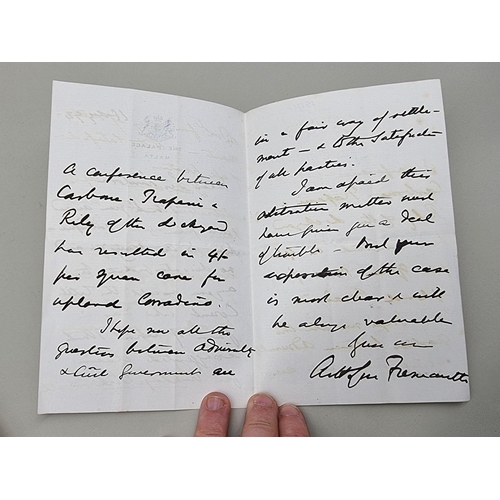 A conference between
Carbone - Trapani &
Riley of the dockyard
has resulted in 4/-
per square cane for
upland Corradino.
I hope now all the
questions between Admiralty
& Civil Government are
in a fair way of settle-
ment - & to the satisfaction
of all parties.
I am afraid this
arbitration matter must
have given you a deal
of trouble - And your
exposition of the case
is most clear & will
be always valuable
Yours ever
Arthur Fremantle
THE PALACE
MALTA